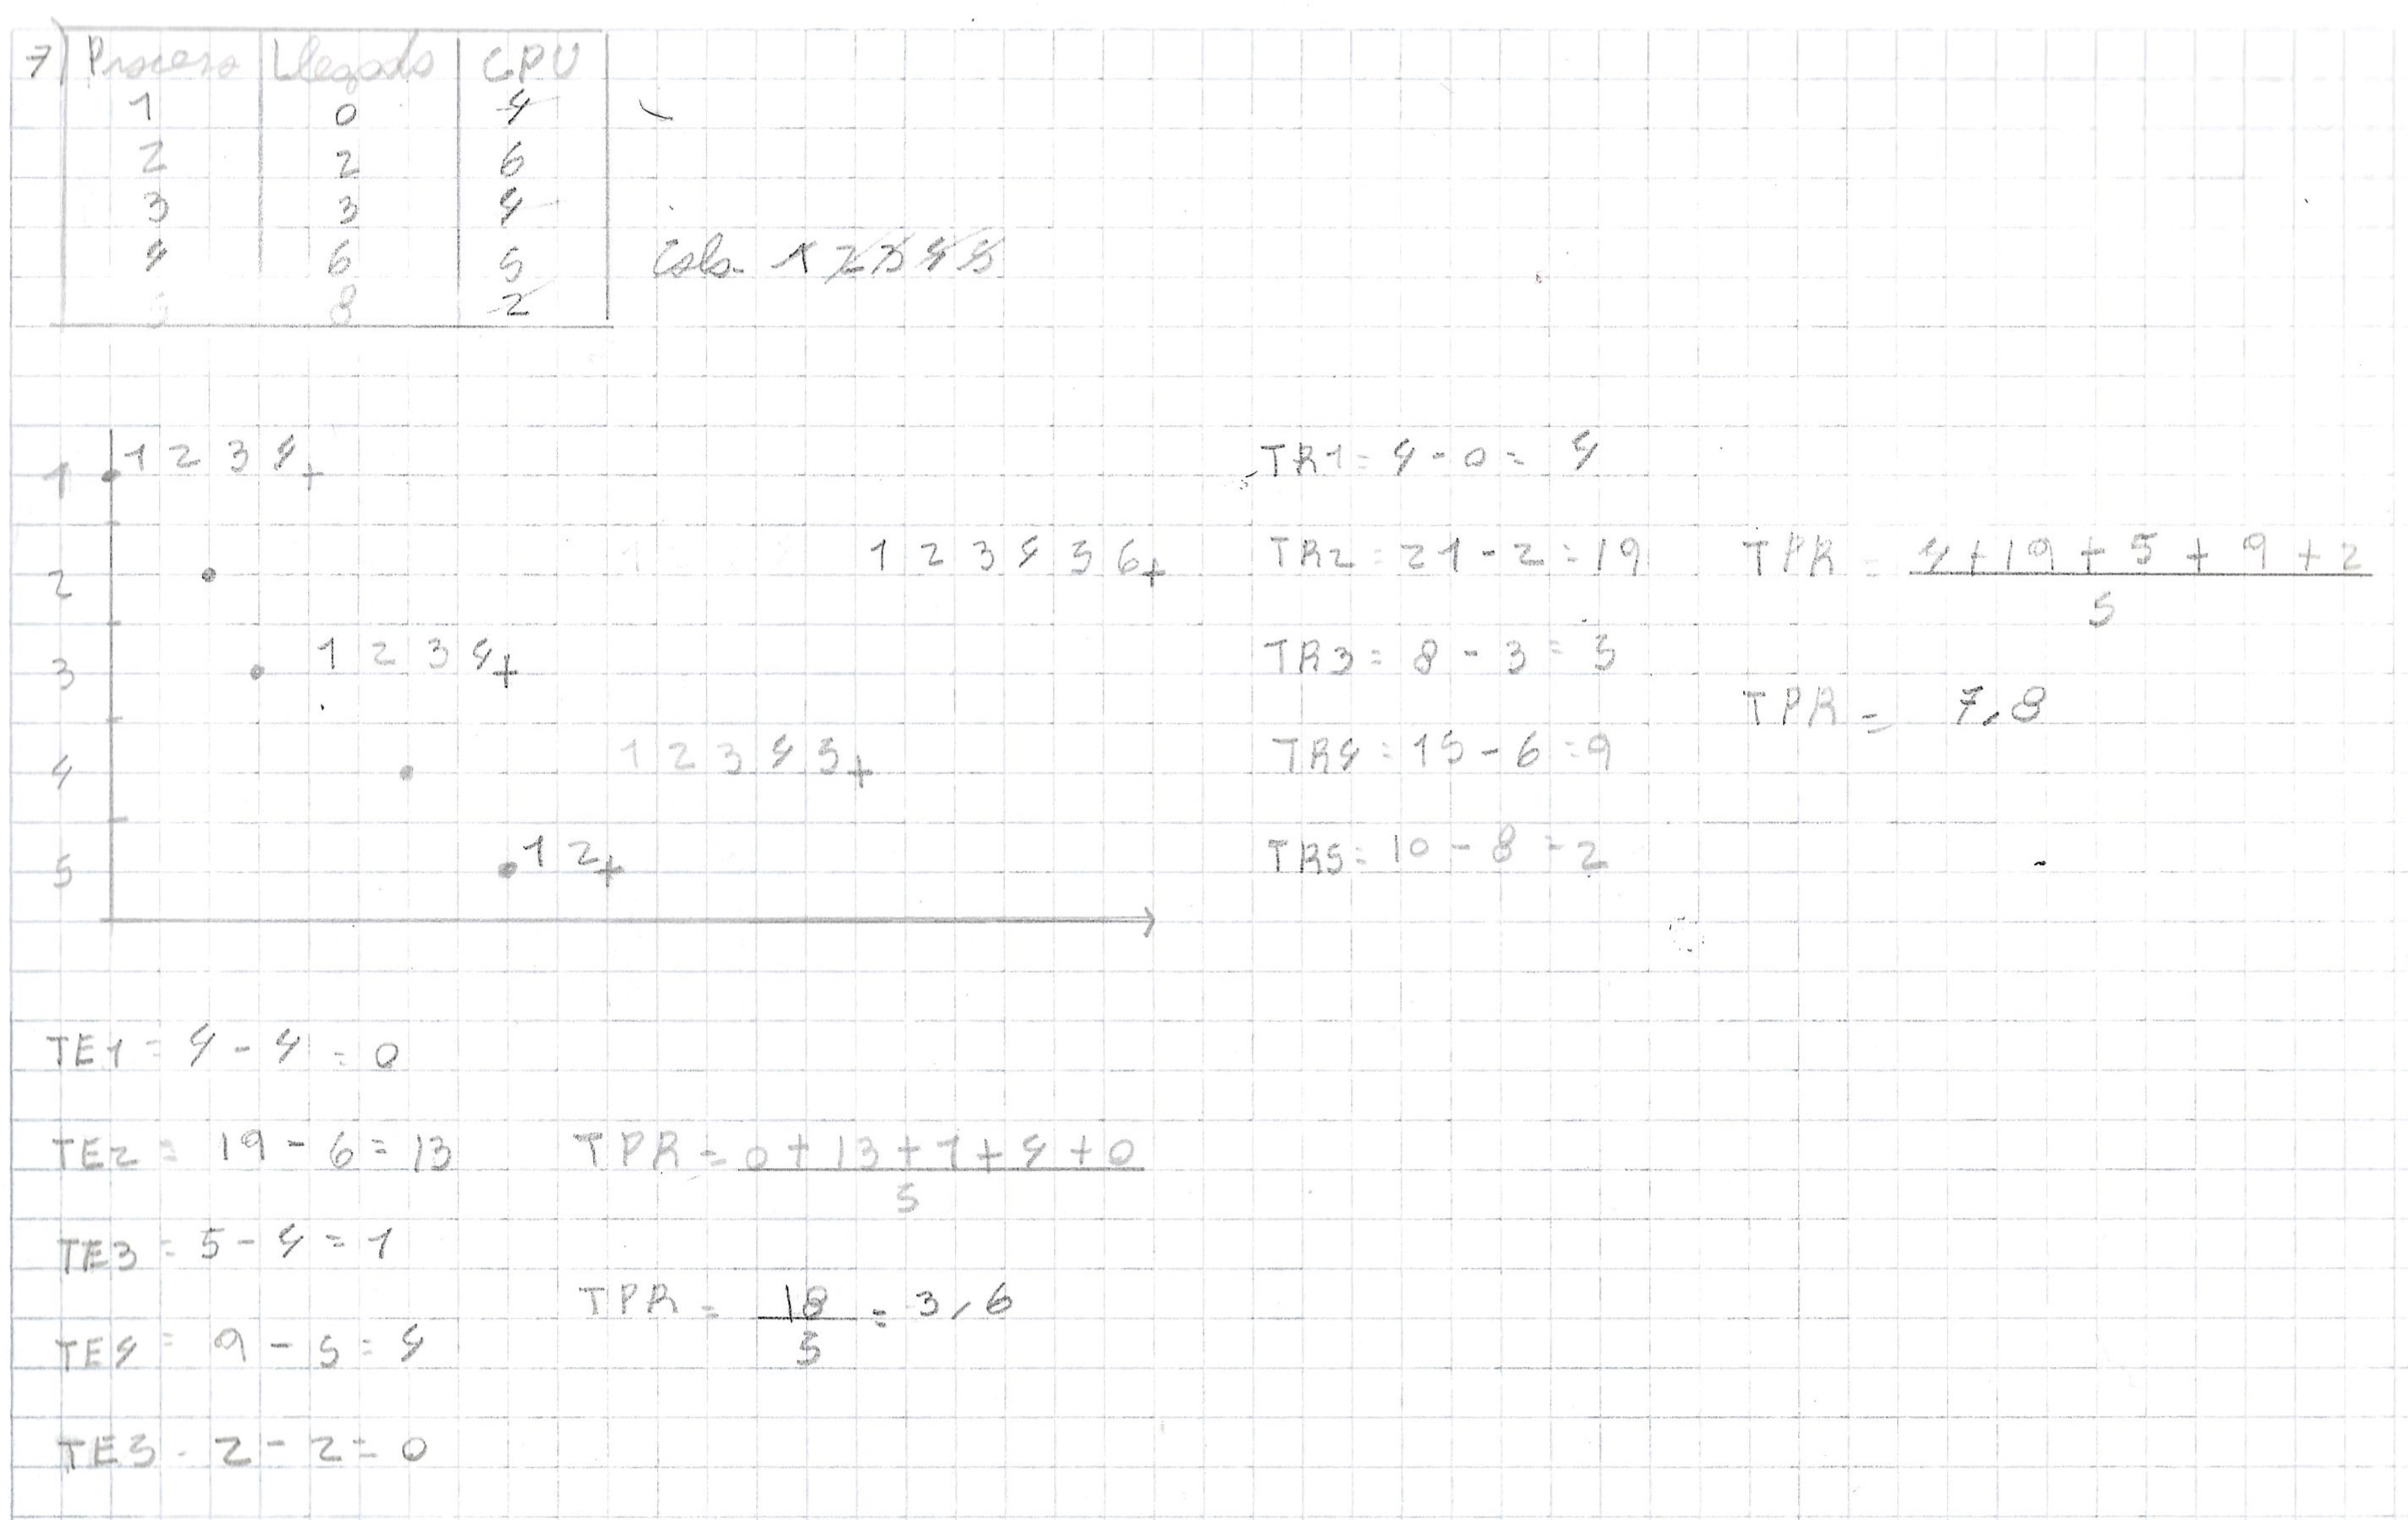 7) Proceso Llegada CPU
1 0 4
2 2 6
3 3 4
4 6 5
5 8 2
Cola 1 2 3 4 5
1 1 2 3 4
2 1 2 3 4 5 6
3 1 2 3 4
4 1 2 3 4 5
5 1 2
TR1 = 4 - 0 = 4
TR2 = 21 - 2 = 19
TR3 = 8 - 3 = 5
TR4 = 15 - 6 = 9
TR5 = 10 - 8 = 2
TPR = 4 + 19 + 5 + 9 + 2
5
TPR = 7,8
TE1 = 4 - 4 = 0
TE2 = 19 - 6 = 13
TE3 = 5 - 4 = 1
TE4 = 9 - 5 = 4
TE5 - 2 - 2 = 0
TPR = 0 + 13 + 1 + 4 + 0
5
TPR = 18 = 3,6
5